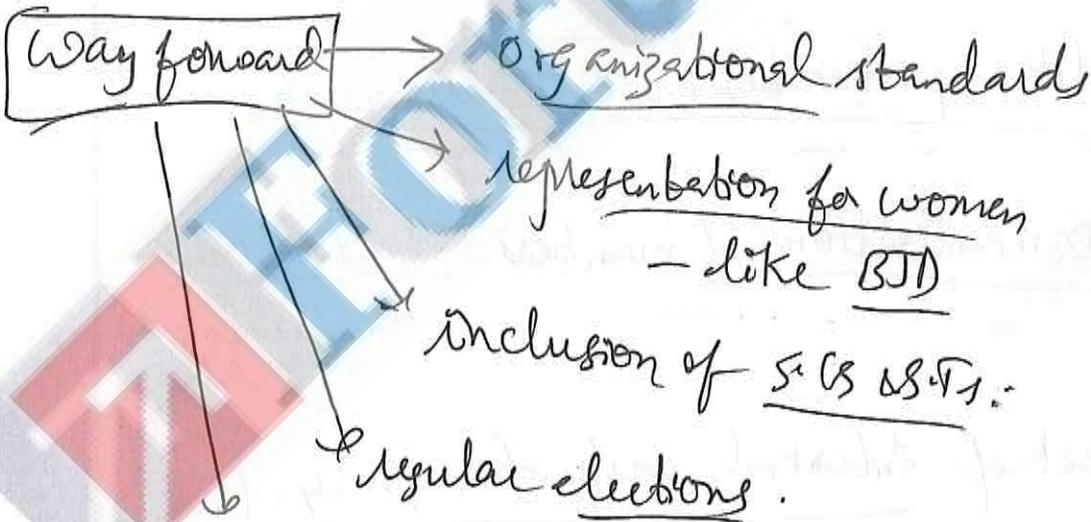 Way forward
organizational standards
representation for women
- like BJD
inclusion of S.Cs & S.Ts.
regular elections.